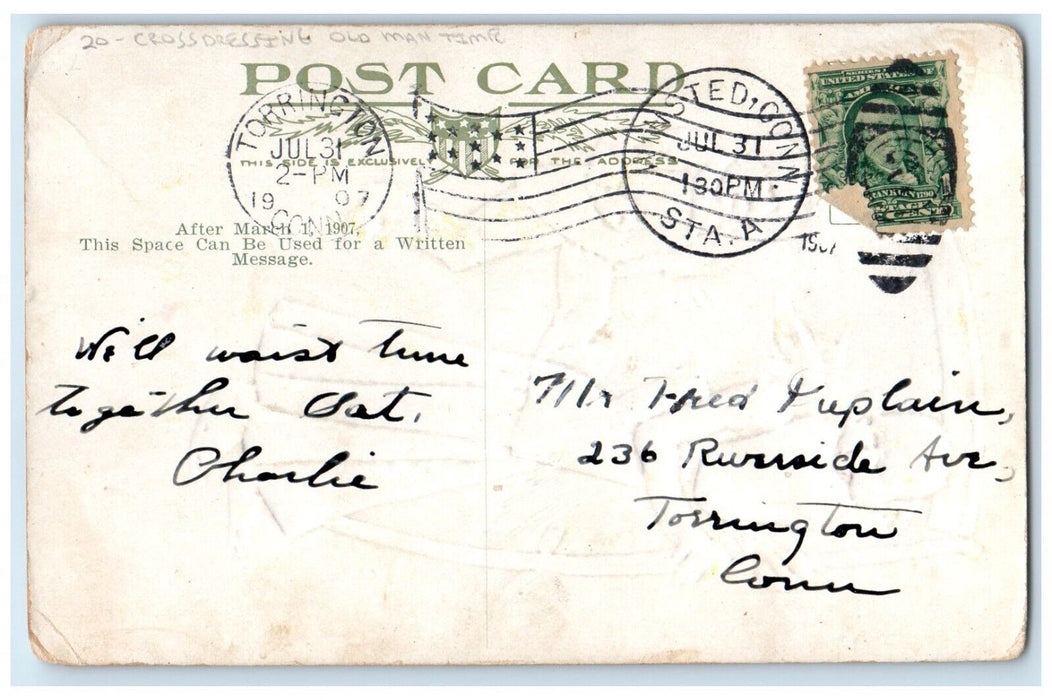 20 - CROSSDRESSING OLD MAN TIME
POST CARD
THIS SIDE IS EXCLUSIVEL FOR THE ADDRESS
TORRINGTON
JUL 31
2-PM
19 07
CONN.
WINSTED, CONN.
JUL 31
130PM
STA. A
1907
SERIES
UNITED STATES OF
AMERICA
FRANKLIN 1790
CENT
After March 1, 1907,
This Space Can Be Used for a Written
Message.
We'll waist time
together Sat.
Charlie
Mr Fred Duplain,
236 Riverside Ave,
Torrington
Conn